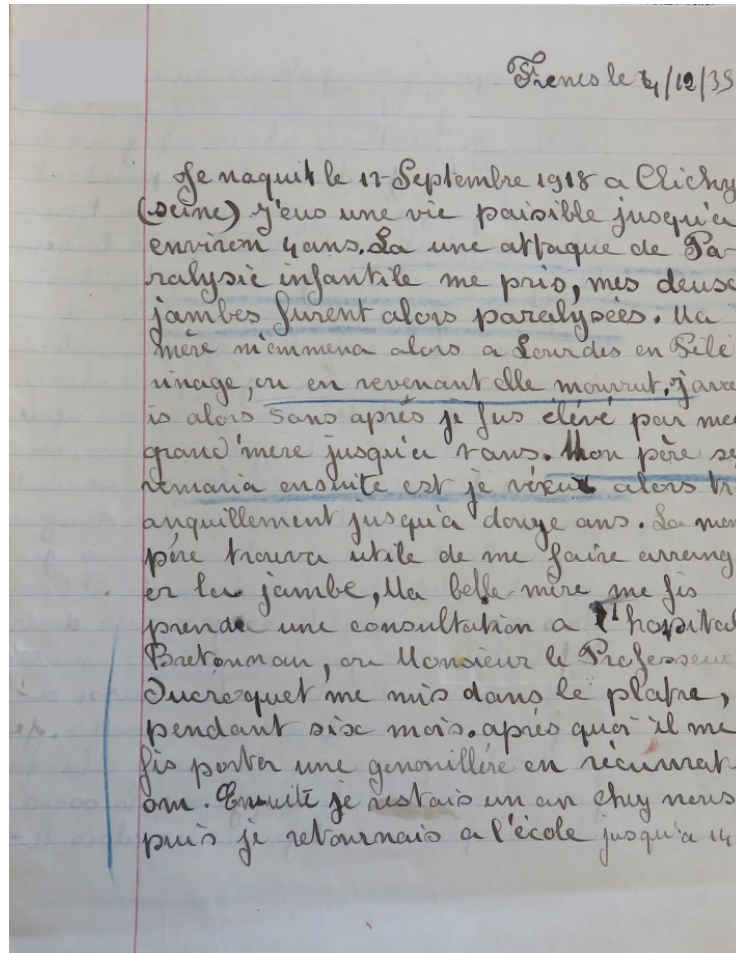 Fresnes le 4/12/35
Je naquit le 17 Septembre 1918 a Clichy
(seine) j'eus une vie paisible jusqu'a
environ 4 ans. La une attaque de Pa-
ralysie infantile me pris, mes deux
jambes furent alors paralysées. Ma
mère m'emmena alors a Lourdes en Péle
rinage, ou en revenant elle mourrut. j'ava
is alors 5ans après je fus élévé par me
grand'mere jusqu'a 7ans. Mon père se
remaria ensuite est je vécut alors tr
anquillement jusqu'a douze ans. La mon
père trouva utile de me faire arrang
er la jambe, Ma belle-mère me fis
prendre une consultation a l'hopital
Bretonnau, ou Monsieur le Professeur
Ducroquet me mis dans le platre,
pendant six mois. après quoi il me
fis porter une genouillére en
om. Ensuite je restais un an chez nous
puis je retournais a l'école jusqu'a 14